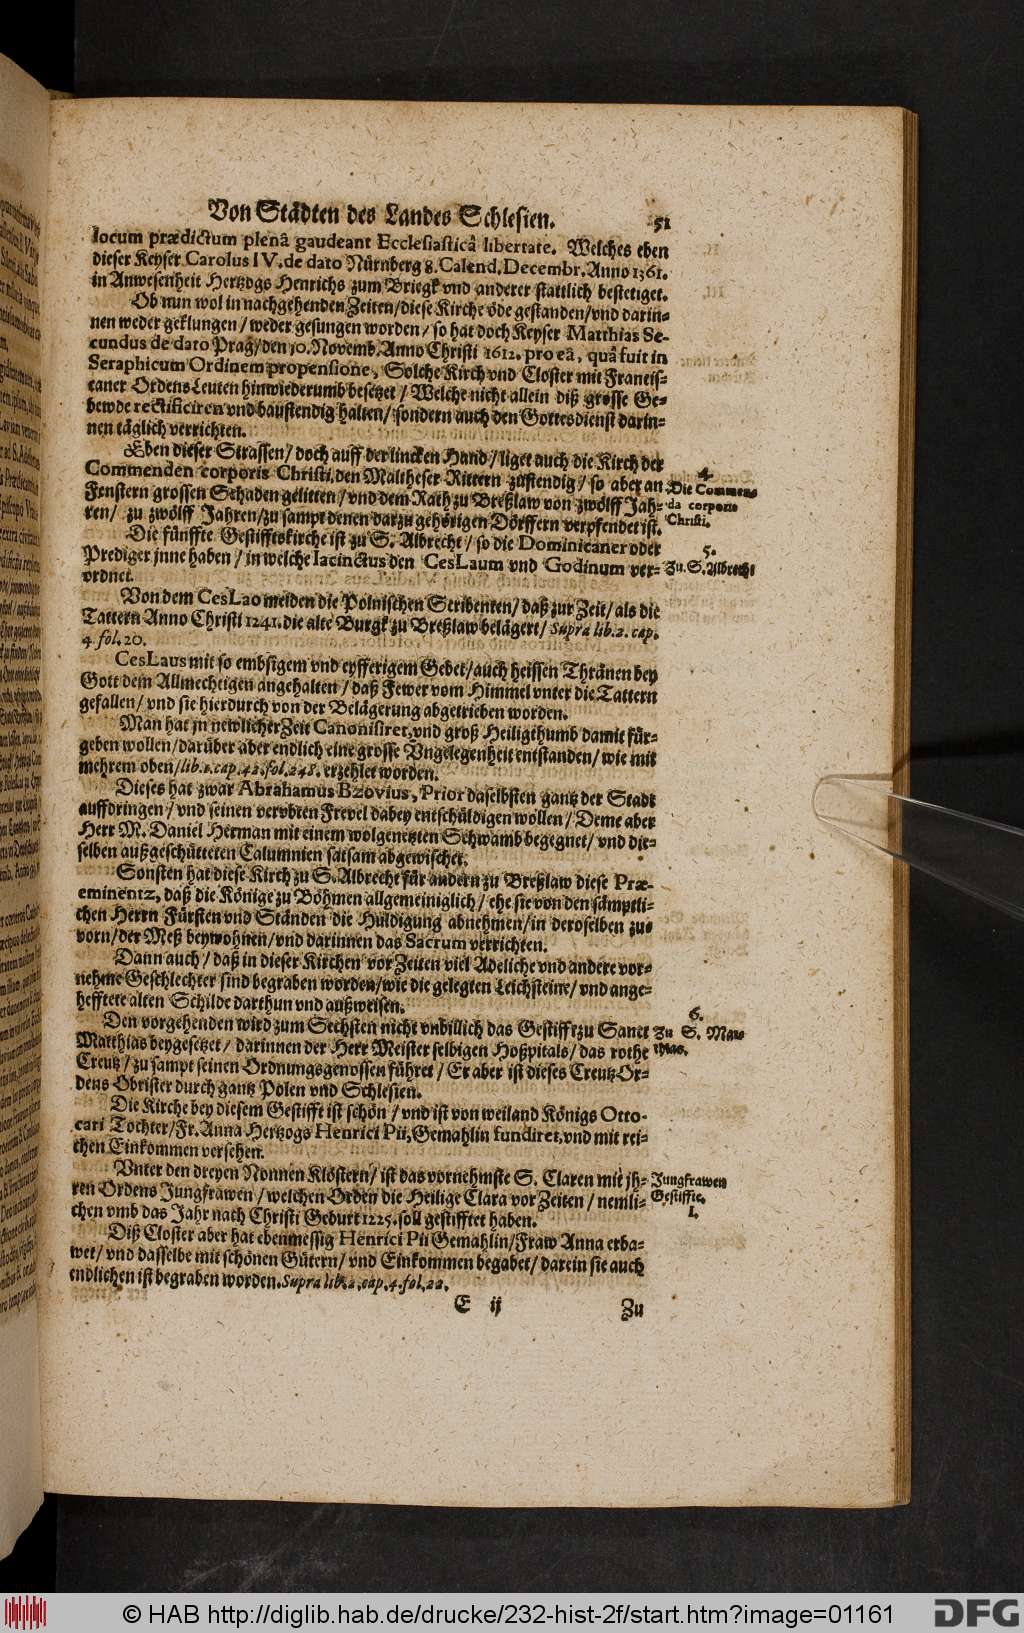 Von Städten des Landes Schlesien. 51
locum prædictum plenâ gaudeant Ecclesiasticâ libertate. Welches eben
dieser Keyser Carolus IV. de dato Nürnberg 8. Calend. Decembr. Anno 1361.
in Anwesenheit Hertzogs Henrichs zum Briegk vnd anderer stattlich bestetiget.
Ob nun wol in nachgehenden Zeiten/ diese Kirche öde gestanden/ vnd darin-
nen weder geklungen/ weder gesungen worden/ so hat doch Keyser Matthias Se-
cundus de dato Prag/ den 10. Novemb. Anno Christi 1612. pro eâ, quâ fuit in
Seraphicum Ordinem propensione, Solche Kirch vnd Closter mit Francis-
caner Ordens Leuten hinwiederumb besetzet/ Welche nicht allein diß grosse Ge-
bewde rectificiren vnd baustendig halten/ sondern auch den Gottesdienst darin-
nen täglich verrichten.
Eben dieser Strassen/ doch auff der lincken Hand/ liget auch die Kirch der
Commenden corporis Christi, den Maltheser Rittern zustendig/ so aber an
Fenstern grossen Schaden gelitten/ vnd dem Rath zu Breßlaw von zwölff Jah-
ren/ zu zwölff Jahren/ zu sampt denen darzu gehörigen Dörffern verpfendet ist.
4.
Die Commen-
da corporis
Christi.
Die fünffte Gestifftskirche ist zu S. Albrecht/ so die Dominicaner oder
Prediger jnne haben/ in welche Iacinctus den CesLaum vnd Godinum ver-
ordnet.
5.
Zu S. Albrecht
Von dem CesLao melden die Polnischen Scribenten/ daß zur Zeit/ als die
Tattern Anno Christi 1241. die alte Burgk zu Breßlaw belägert/ Supra lib. 2. cap.
4. fol. 20.
CesLaus mit so embsigem vnd eyfferigem Gebet/ auch heissen Thränen bey
Gott dem Allmechtigen angehalten/ daß Fewer vom Himmel vnter die Tattern
gefallen/ vnd sie hierdurch von der Belägerung abgetrieben worden.
Man hat jn newlicher Zeit Canonisiret, vnd groß Heiligthumb damit für-
geben wollen/ darüber aber endlich eine grosse Vngelegenheit entstanden/ wie mit
mehrem oben/ lib. 1. cap. 42. fol. 248. erzehlet worden.
Dieses hat zwar Abrahamus Bzovius, Prior daselbsten gantz der Stadt
auffdringen/ vnd seinen verübten Frevel dabey entschüldigen wollen/ Deme aber
Herr M. Daniel Herman mit einem wolgenetzten Schwamb begegnet/ vnd die-
selben außgeschütteten Calumnien satsam abgewischet.
Sonsten hat diese Kirch zu S. Albrecht für andern zu Breßlaw diese Præ-
eminentz, daß die Könige zu Böhmen allgemeiniglich/ ehe sie von den sämptli-
chen Herrn Fürsten vnd Ständen die Huldigung abnehmen/ in deroselben zu-
vorn/ der Meß beywohnen/ vnd darinnen das Sacrum verrichten.
Dann auch/ daß in dieser Kirchen vor Zeiten viel Adeliche vnd andere vor-
nehme Geschlechter sind begraben worden/ wie die gelegten Leichsteine/ vnd ange-
hefftete alten Schilde darthun vnd außweisen.
Den vorgehenden wird zum Sechsten nicht vnbillich das Gestifft zu Sanct
Matthias beygesetzet/ darinnen der Herr Meister selbigen Hoßpitals/ das rothe
Creutz/ zu sampt seinen Ordnungsgenossen führet/ Er aber ist dieses Creutz Or-
dens Obrister durch gantz Polen vnd Schlesien.
6.
Zu S. Mat-
thias.
Die Kirche bey diesem Gestifft ist schön/ vnd ist von weiland Königs Otto-
cari Tochter/ Fr. Anna Hertzogs Henrici Pii, Gemahlin fundiret, vnd mit rei-
chen Einkommen versehen.
Vnter den dreyen Nonnen Klöstern/ ist das vornehmste S. Claren mit jh-
ren Ordens Jungfrawen/ welchen Orden die Heilige Clara vor Zeiten/ nemli-
chen vmb das Jahr nach Christi Geburt 1225. soll gestifftet haben.
Jungfrawen
Gestiffte.
1.
Diß Closter aber hat ebenmessig Henrici Pii Gemahlin/ Fraw Anna erba-
wet/ vnd dasselbe mit schönen Gütern/ vnd Einkommen begabet/ darein sie auch
endlichen ist begraben worden. Supra lib. 2. cap. 4. fol. 22.
E ij Zu
© HAB http://diglib.hab.de/drucke/232-hist-2f/start.htm?image=01161
DFG